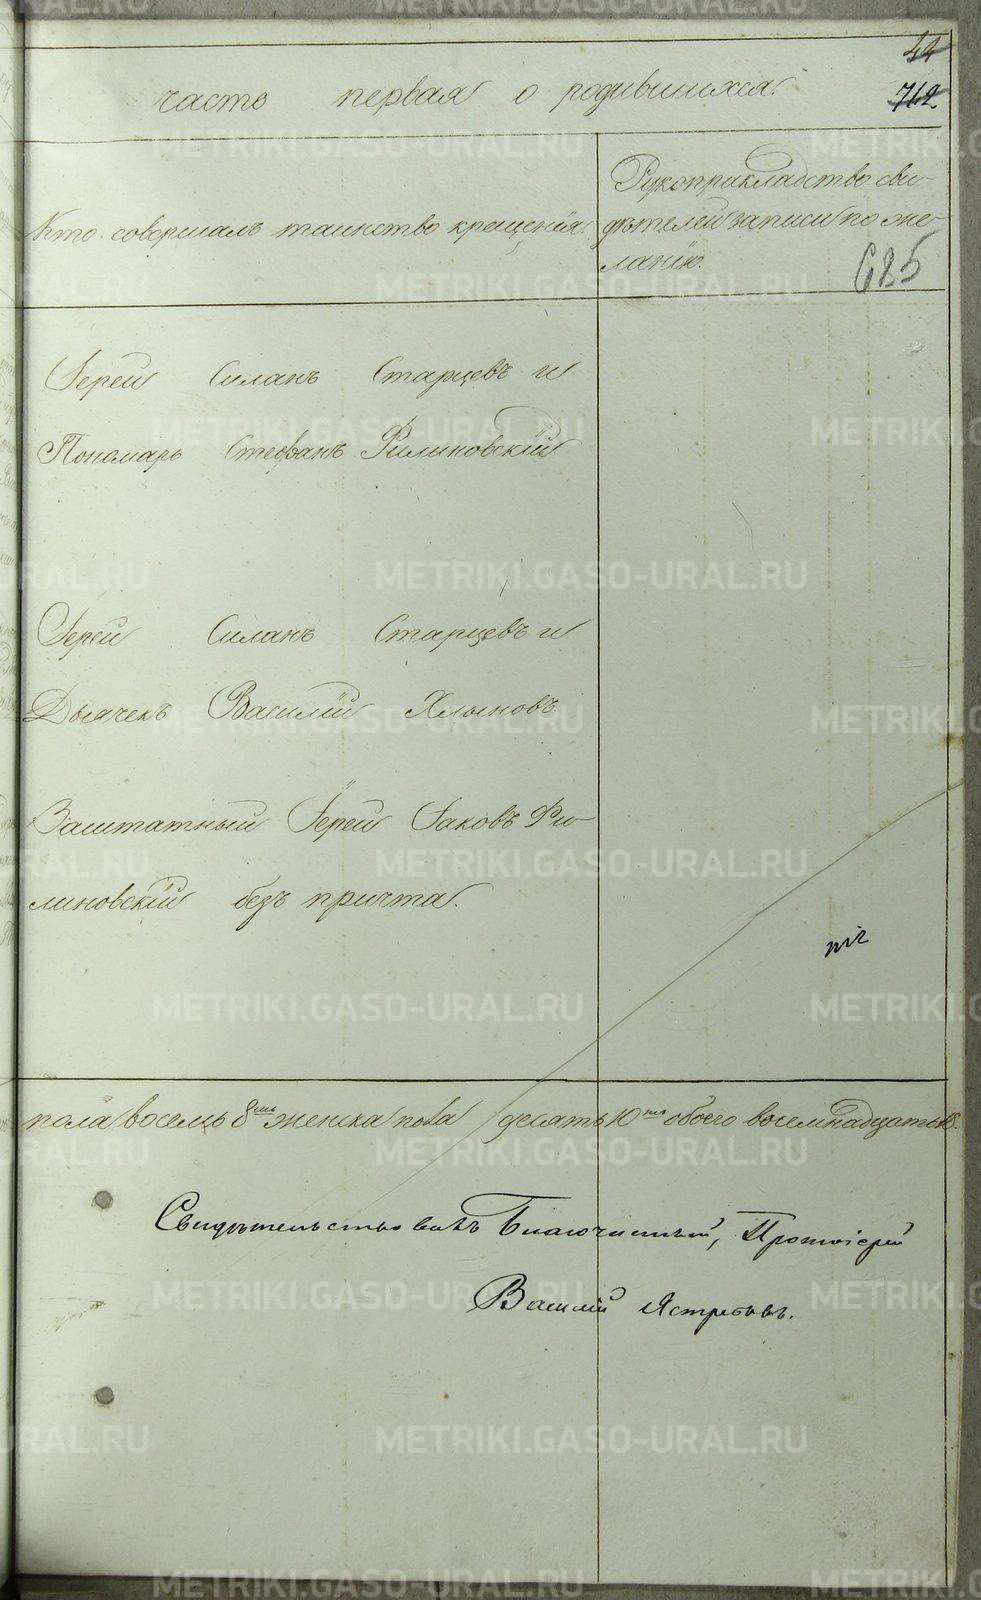 44
762
часть первая о родившихся.
Кто совершалъ таинство крещенія.
Рукоприкладство сви-
дѣтелей записи по же-
ланію.
685
Іерей Силанъ Старцевъ и
Пономарь Стефанъ Филиновскій
Іерей Силанъ Старцевъ и
Дьячекъ Василій Хлыновъ
Заштатный Іерей Іаковъ Фи-
линовскій безъ причта.
пола восемь 8мь женска пола десять 10ть обоего восемнадцать 18.
Свидѣтельствовалъ Благочинный, Протоіерей
Василій Ястребовъ.
METRIKI.GASO-URAL.RU